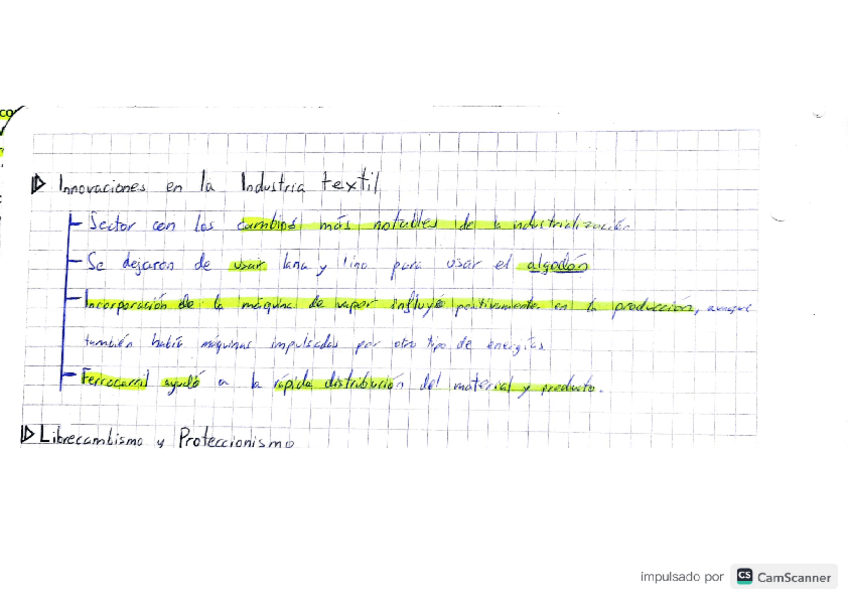 co
Innovaciones en la Industria textil
Sector con los cambios más notables de la industrialización.
Se dejaron de usar lana y lino para usar el algodón
Incorporación de la máquina de vapor influyó positivamente en la producción, aunque
también había máquinas impulsadas por otro tipo de energías.
Ferrocarril ayudó a la rápida distribución del material y producto.
Librecambismo y Proteccionismo
impulsado por CS CamScanner